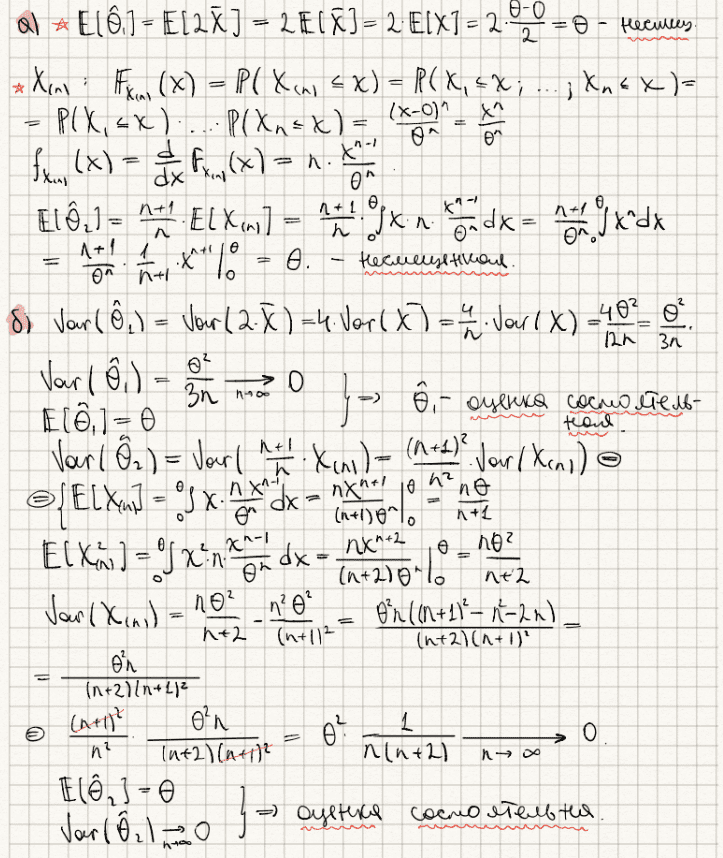 а) * E[θ̂₁] = E[2X̄] = 2E[X̄] = 2·E[X] = 2·(θ-0)/2 = θ - несмещ.
* X₍ₙ₎ : F_X₍ₙ₎(x) = P(X₍ₙ₎ ≤ x) = P(X₁ ≤ x; ...; Xₙ ≤ x) =
= P(X₁ ≤ x)·...·P(Xₙ ≤ x) = (x-0)ⁿ/θⁿ = xⁿ/θⁿ
f_X₍ₙ₎(x) = d/dx F_X₍ₙ₎(x) = n · xⁿ⁻¹/θⁿ.
E[θ̂₂] = (n+1)/n · E[X₍ₙ₎] = (n+1)/n · ₀∫^θ x·n·xⁿ⁻¹/θⁿ dx = (n+1)/θⁿ ₀∫^θ xⁿdx
= (n+1)/θⁿ · 1/(n+1) · xⁿ⁺¹|₀^θ = θ. - несмещенная.
б) Var(θ̂₁) = Var(2·X̄) = 4·Var(X̄) = 4/n · Var(X) = 4θ²/12n = θ²/3n.
Var(θ̂₁) = θ²/3n → 0 n→∞
E[θ̂₁] = θ
} => θ̂₁ - оценка состоятель-
ная.
Var(θ̂₂) = Var((n+1)/n · X₍ₙ₎) = (n+1)²/n² · Var(X₍ₙ₎) ⊜
⊜ { E[X₍ₙ₎] = ₀∫^θ x · nxⁿ⁻¹/θⁿ dx = nxⁿ⁺¹/((n+1)θⁿ)|₀^θ = nθ/(n+1)
E[X²₍ₙ₎] = ₀∫^θ x²·n·xⁿ⁻¹/θⁿ dx = nxⁿ⁺²/((n+2)θⁿ)|₀^θ = nθ²/(n+2)
Var(X₍ₙ₎) = nθ²/(n+2) - n²θ²/(n+1)² = θ²n((n+1)² - n² - 2n)/((n+2)(n+1)²) =
= θ²n/((n+2)(n+1)²)
⊜ (n+1)²/n² · θ²n/((n+2)(n+1)²) = θ² · 1/(n(n+2)) → 0. n→∞
E[θ̂₂] = θ
Var(θ̂₂) → 0 n→∞
} => оценка состоятельна.